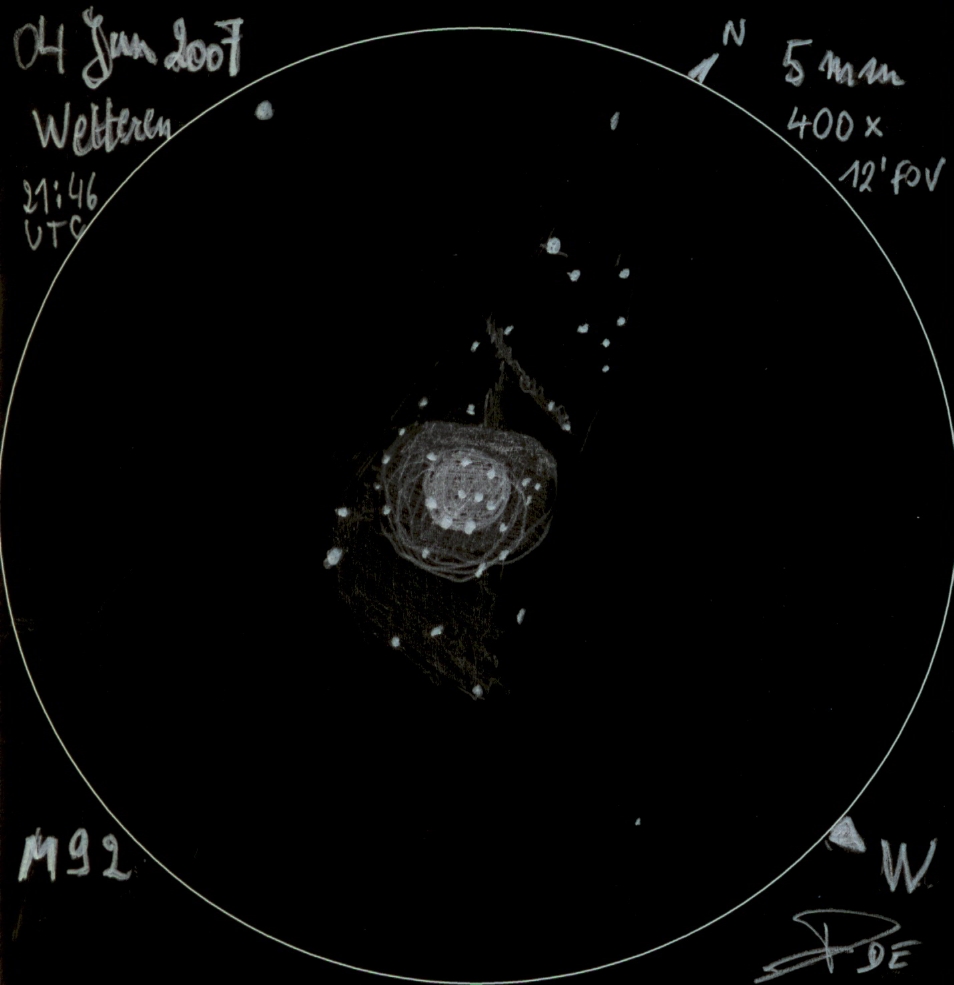 04 Jun 2007
Wetteren
21:46
UTC
N
5 mm
400x
12' FOV
M92
W
DE